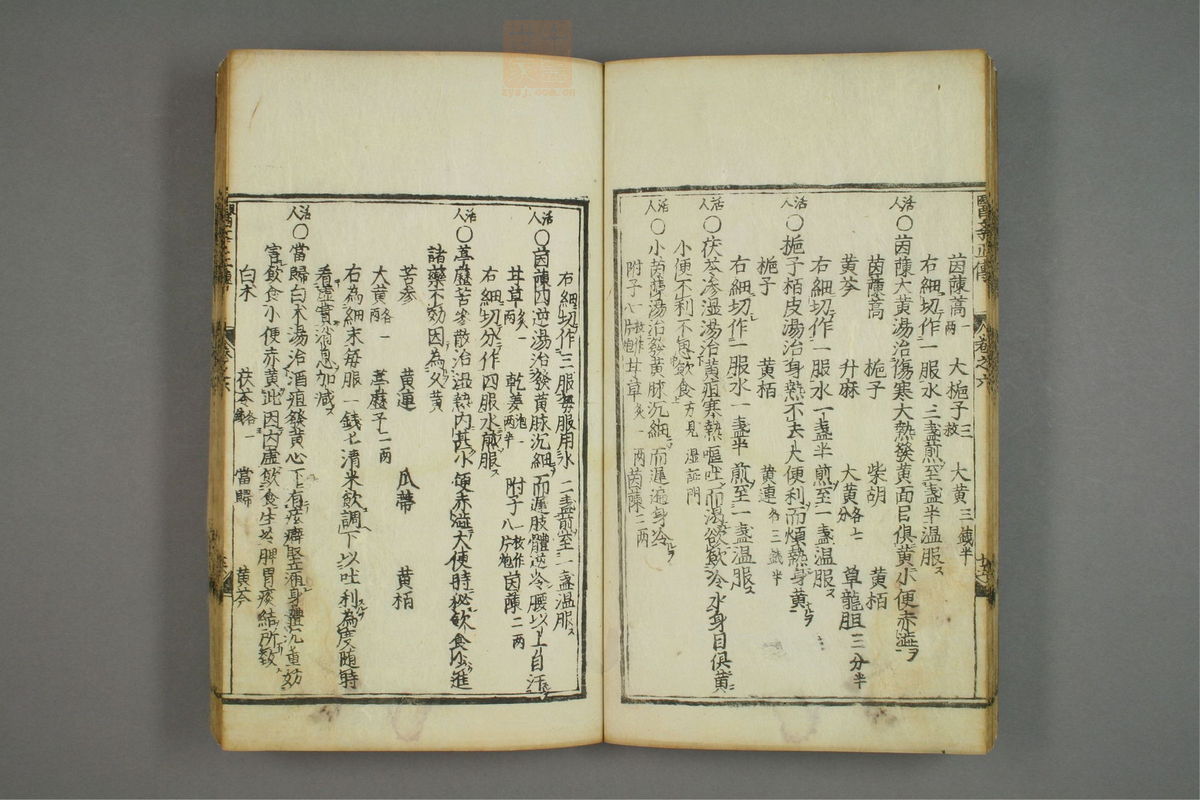 醫學正傳 卷之六
茵蔯蒿一兩 大梔子三枚 大黃三錢半
右細切作一服水三盞煎至盞半温服
活人〇茵蔯大黃湯治傷寒大熱發黃面目俱黃小便赤澁
茵蔯蒿 梔子 柴胡 黃栢
黃芩 升麻 大黃各七分 草龍胆三分半
右細切作一服水一盞半煎至一盞温服
活人〇梔子栢皮湯治身熱不去大便利而煩熱身黃
梔子 黃栢 黃連各三錢半
右細切作一服水一盞半煎至一盞温服
活人〇茯苓滲湿湯治黃疸寒熱嘔吐而渴欲飲冷水身目俱黃
小便不利不思飲食方見湿証門
活人〇小茵蔯湯治發黃脉沉細而遲遍身冷
附子一枚作八片炮 甘草炙一兩 茵蔯二兩
右細切作三服每服用水二盞煎至一盞温服
活人〇茵蔯四逆湯治發黃脉沉細而遲肢體逆冷腰以上自汗
甘草炙一兩 乾姜炮一兩半 附子一枚作八片炮 茵蔯二兩
右細切分作四服水煎服
活人〇葶藶苦参散治湿熱内甚小便赤澁大便時秘飲食少進
諸藥不効因為久黃
苦参 黃連 瓜蒂 黃栢
大黃各一兩 葶藶子二兩
右為細末每服一錢七清米飲調下以吐利為度随時
看虚實消息加减
活人〇當歸白朮湯治酒疸發黃心下有痃癖堅滿身體沉重妨
害飲食小便赤黃此因内虚飲食生冷脾胃痰結所致
白朮 茯苓各一錢 當歸 黃芩